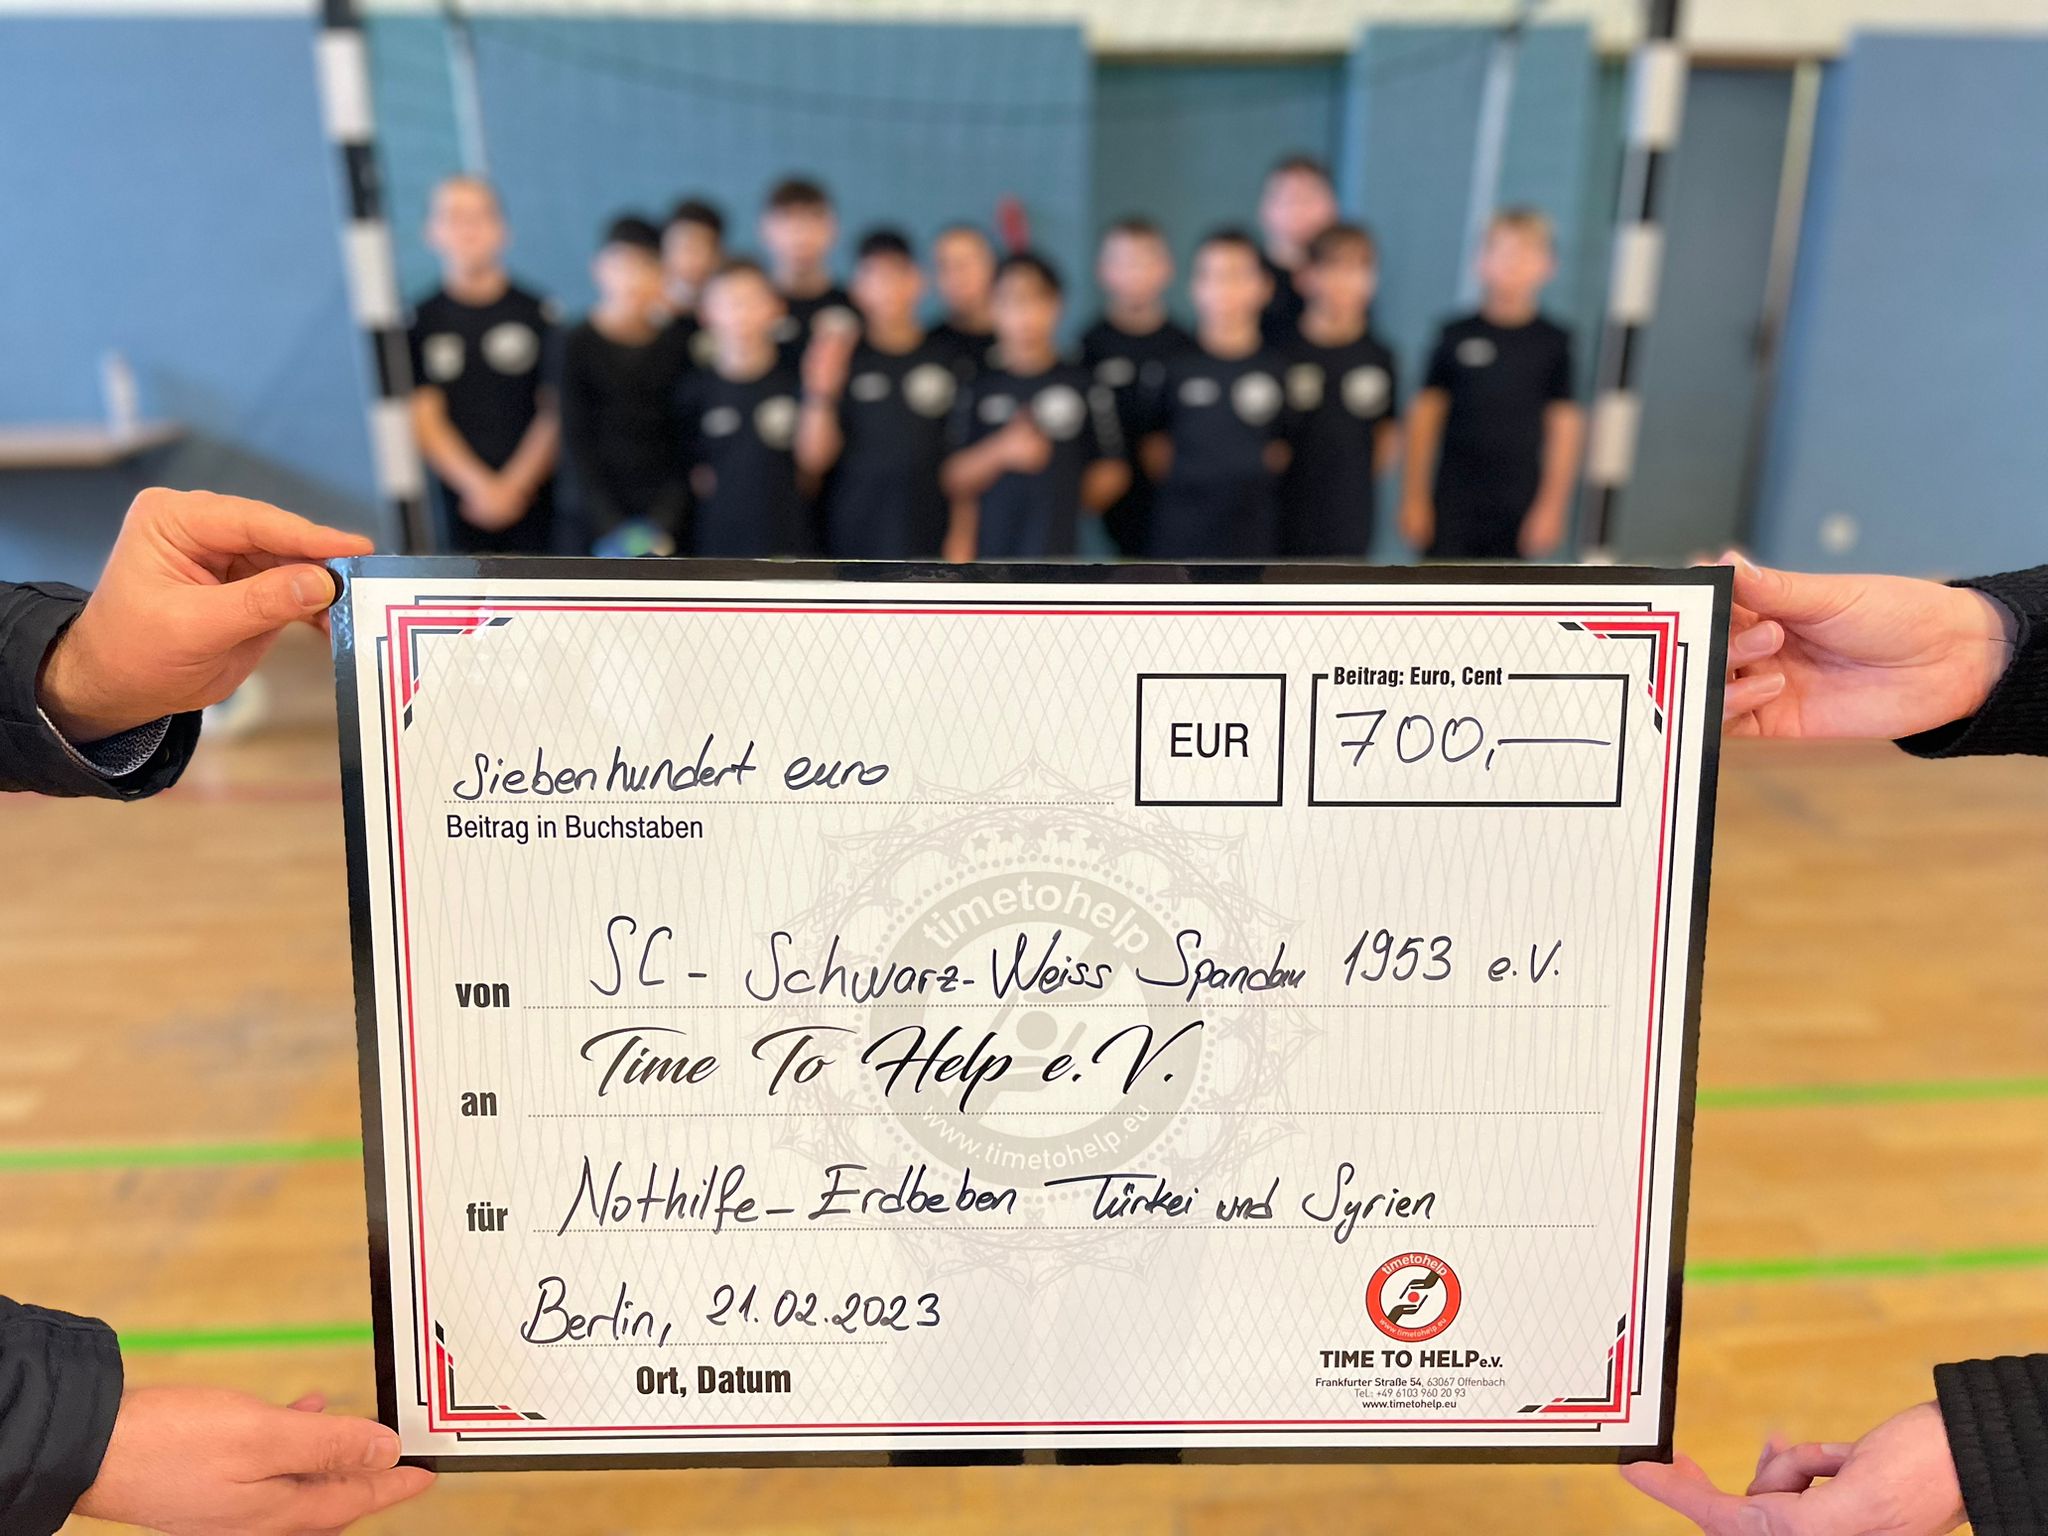 Beitrag: Euro, Cent
EUR
700,—
Siebenhundert euro
Beitrag in Buchstaben
timetohelp
www.timetohelp.eu
von SC - Schwarz-Weiss Spandau 1953 e.V.
an Time To Help e.V.
für Nothilfe - Erdbeben Türkei und Syrien
Berlin, 21.02.2023
Ort, Datum
timetohelp
www.timetohelp.eu
TIME TO HELP e.V.
Frankfurter Straße 54, 63067 Offenbach
Tel.: +49 6103 960 20 93
www.timetohelp.eu